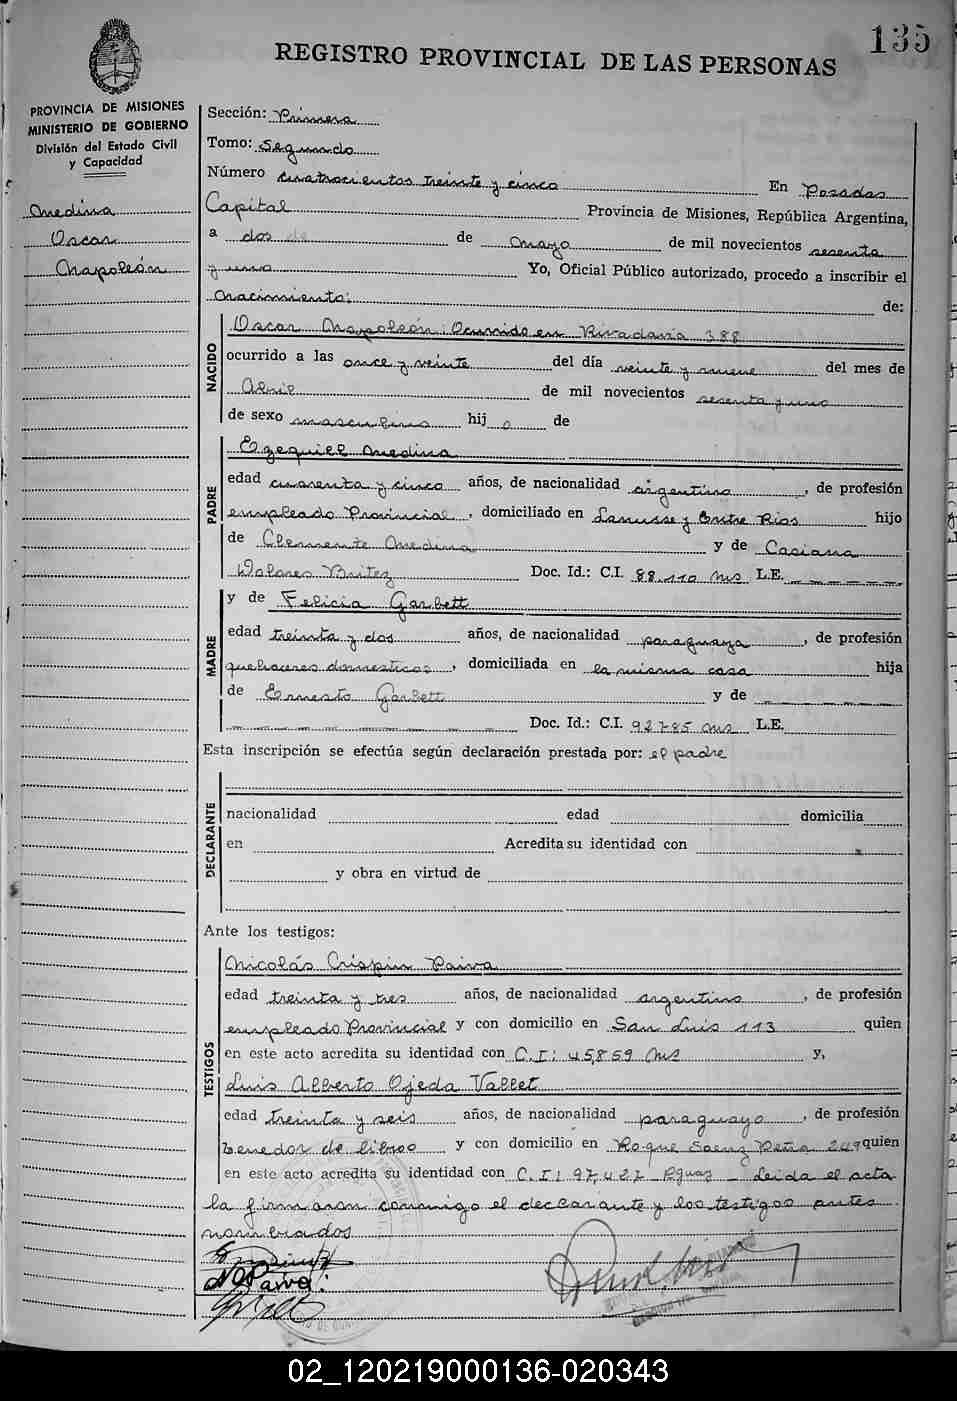 135
REGISTRO PROVINCIAL DE LAS PERSONAS
PROVINCIA DE MISIONES
MINISTERIO DE GOBIERNO
División del Estado Civil
y Capacidad
Medina
Oscar
Napoleón
Sección: Primera
Tomo: Segundo
Número cuatrocientos treinta y cinco En Posadas
Capital Provincia de Misiones, República Argentina,
a dos de mayo de mil novecientos sesenta
y uno Yo, Oficial Público autorizado, procedo a inscribir el
nacimiento: de:
NACIDO
Oscar Napoleón: Ocurrido en Rivadavia 388
ocurrido a las once y veinte del día veinte y nueve del mes de
Abril de mil novecientos sesenta y uno
de sexo masculino hij o de
PADRE
Ezequiel Medina
edad cuarenta y cinco años, de nacionalidad argentino, de profesión
empleado Provincial, domiciliado en Lanusse y Entre Rios hijo
de Clemente Medina y de Casiana
Dolores Britez Doc. Id.: C.I. 88.110 Ms L.E.
MADRE
y de Felicia Garbett
edad treinta y dos años, de nacionalidad paraguaya, de profesión
quehaceres domesticos, domiciliada en la misma casa hija
de Ernesto Garbett y de
Doc. Id.: C.I. 92785 Ms L.E.
Esta inscripción se efectúa según declaración prestada por: el padre
DECLARANTE
nacionalidad edad domicilia
en Acredita su identidad con
y obra en virtud de
Ante los testigos:
TESTIGOS
Nicolás Crispin Paiva
edad treinta y tres años, de nacionalidad argentino, de profesión
empleado Provincial y con domicilio en San Luis 113 quien
en este acto acredita su identidad con C.I: 45,859 Ms y,
Luis Alberto Ojeda Vallet
edad treinta y seis años, de nacionalidad paraguayo, de profesión
tenedor de libros y con domicilio en Roque Saenz Peña 249 quien
en este acto acredita su identidad con C.I: 97,427 Pguay - Leida el acta
la firmaron conmigo el declarante y los testigos antes
nombrados
N Paiva
02_120219000136-020343